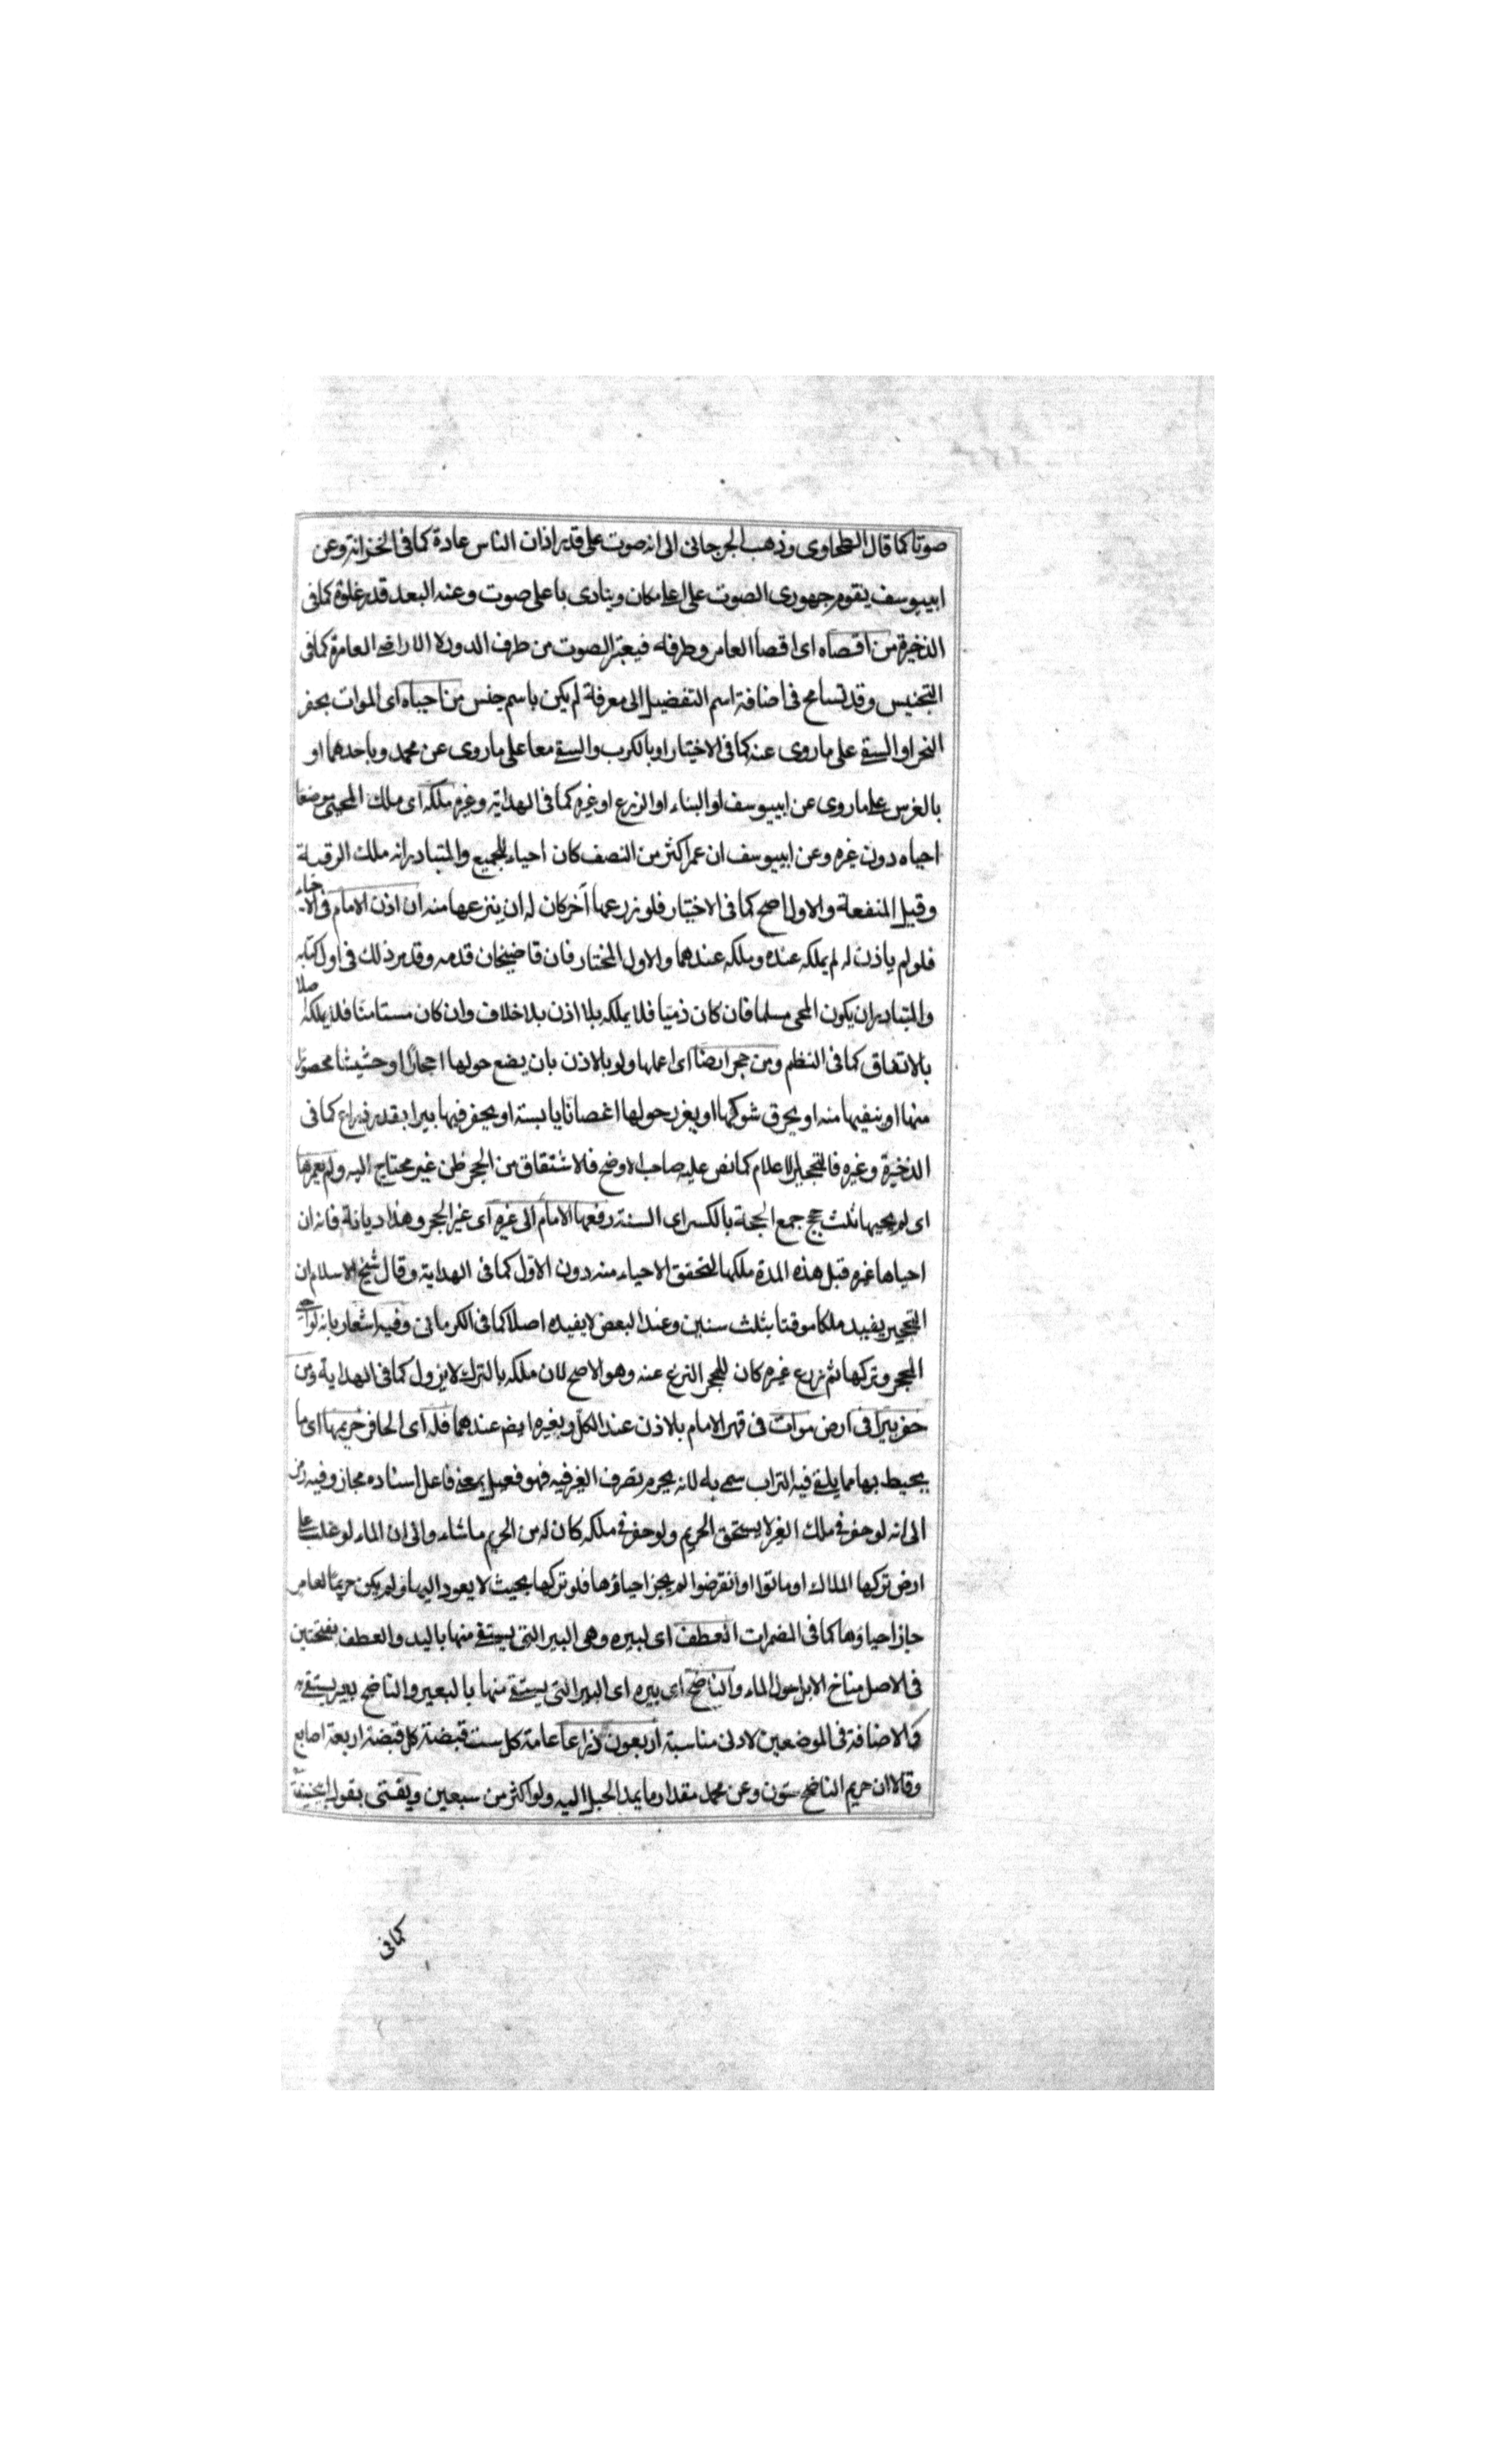 صوتا كما قال الطحاوى وذهب الجرجانى الى انه صوت على قدر اذان الناس عادة كما فى الخزانة وعن
ابييوسف يقوم جهورى الصوت على اعلى مكان وينادى باعلى صوت وعنه البعد قدر غلوة كما فى
الذخيرة من اقصاه اى اقصا العامر وطرفه فيعتبر الصوت من طرف الدور لا الاراضى العامرة كما فى
التجنيس وقد تسامح فى اضافة اسم التفضيل الى معرفة لم يكن باسم جنس من احياه اى الموات بحفر
النهر او السقى على ما روى عنه كما فى الاختيار او بالكرب والسقى معا على ما روى عن محمد وباحدهما او
بالغرس على ما روى عن ابييوسف او البناء او الزرع او غيره كما فى الهداية وغيره ملكه اى ملك المحيى موضعا
احياه دون غيره وعن ابييوسف ان عمر اكثر من النصف كان احياء للجميع والمتبادر انه ملك الرقبة
وقيل المنفعة والاول اصح كما فى الاختيار فلو زرعها آخر كان له ان ينزعها منه ان اذن الامام فى الاحياء
فلو لم ياذن له لم يملكه عنده وملكه عندهما والاول المختار فان قاضيخان قدمه وقد مر ذلك فى اول كتابه
والمتبادر ان يكون المحى مسلما فان كان ذميا فلا يملكه بلا اذن بلا خلاف وان كان مستامنا فلا يملكه اصلا
بالاتفاق كما فى النظم ومن حجر ارضا اى اعملها ولو بالاذن بان يضع حولها احجارا او حشيشا محصودا
منها او ينفيها منه او يحرق شوكها او يغرز حولها اغصانا يابسة او يحفر فيها بيرا بقدر ذراع كما فى
الذخيرة وغيره فالتحجير الاعلام كما نص عليه صاحب الاوضح فالاشتقاق من الحجر ظن غير محتاج اليه ولم يعمرها
اى لم يحيها ثلث حجج جمع الحجة بالكسر اى السنة دفعها الامام الى غيره اى غير المحجر وهذا ديانة فانه ان
احياها غيره قبل هذه المدة ملكها لتحقق الاحياء منه دون الاول كما فى الهداية وقال شيخ الاسلام ان
التحجير يفيد ملكا موقتا بثلث سنين وعند البعض لا يفيده اصلا كما فى الكرمانى وفيه اشعار بانه لو احيى
المحجر وتركها ثم زرع غيره كان للمحجر النزع عنه وهو الاصح لان ملكه بالترك لا يزول كما فى الهداية ومن
حفر بيرا فى ارض موات فى قهر الامام بلا اذن عند الكل وبغيره ايضم عندهما فله اى الحافر حريمها اى ما
يحيط بها مما يلقى فيه التراب سمى به لانه يحرم تصرف الغير فيه فهو فعيل بمعنى فاعل اسناده مجاز وفيه رمز
الى انه لو حفر فى ملك الغير لا يستحق الحريم ولو حفر فى ملكه كان له من الحريم ما شاء والى ان الماء لو غلب على
ارض تركها الملاك او ماتوا او انقرضوا لم يجز احياؤها فلو تركها بحيث لا يعود اليها ولم يكن حريما لعامر
جاز احياؤها كما فى المضمرات العطف اى لبيره وهى البير التى يستقى منها باليد والعطف بفتحتين
فى الاصل مناخ الابل حول الماء والناضح اى بيره اى البير التى يستقى منها بالبعير والناضح بعير يستقى به
فالاضافة فى الموضعين لادنى مناسبة اربعون ذراعا عامة كل ست قبضة كل قبضة اربعة اصابع
وقالا ان حريم الناضح ستون وعن محمد مقدار ما يمد الحبل اليه ولو اكثر من سبعين ويفتى بقول ابيحنيفة
كما فى